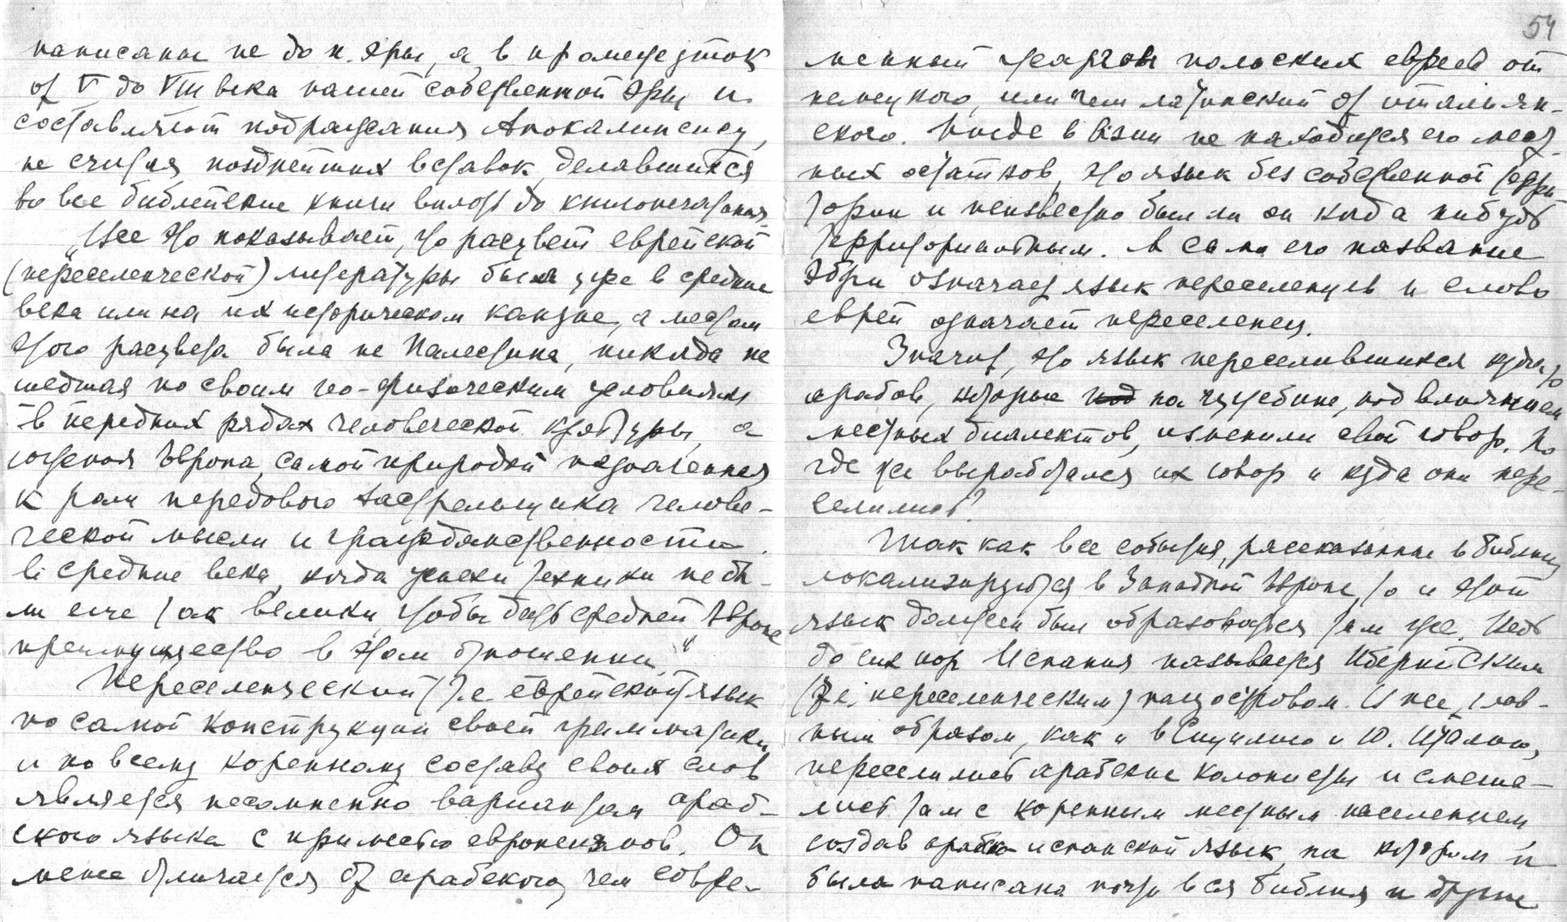 написаны не до н. эры, а в промежуток
от V до VIII века нашей собственной эры и
составляют подражания Апокалипсису,
не считая позднейших вставок, делавшихся
во все библейские книги вплоть до книгопечатания.
„Все это показывает, что расцвет еврейской
(переселенческой) литературы был уже в средние
века или на их историческом кануне, а местом
этого расцвета была не Палестина, никогда не
шедшая по своим гео-физическим условиям
в передних рядах человеческой культуры, а
южная Европа, самой природой назначенная
к роли передового застрельщика челове-
ческой мысли и гражданственности
в средние века, когда успехи техники не бы-
ли еще так велики, чтобы дать средней Европе
преимущество в этом отношении."
Переселенческий (т.е. еврейский) язык
по самой конструкции своей грамматики
и по всему коренному составу своих слов
является несомненно вариантом араб-
ского языка с примесью европеизмов. Он
менее отличается от арабского, чем совре-
54
менный жаргон польских евреев от
немецкого, или чем латинский от итальян-
ского. Нигде в Азии не находится его мест-
ных остатков, это язык без собственной терри-
тории и неизвестно был ли он когда нибудь
территориальным. А само его название
эбри означает язык переселенцев и слово
еврей означает переселенец.
Значит, это язык переселившихся куда то
арабов, которые под на чужбине, под влиянием
местных диалектов, изменили свой говор. Но
где же выработался их говор и куда они пере-
селились?
Так как все события, рассказанные в Библии
локализируются в Западной Европе, то и этот
язык должен был образоваться там же. Ведь
до сих пор Испания называется Иберийским
(т.е. переселенческим) полуостровом. И в нее, глав-
ным образом, как и в Сицилию и Ю. Италию,
переселились арабские колонисты и смеша-
лись там с коренным местным населением
создав арабско испанский язык, на котором и
была написана почти вся Библия и другие